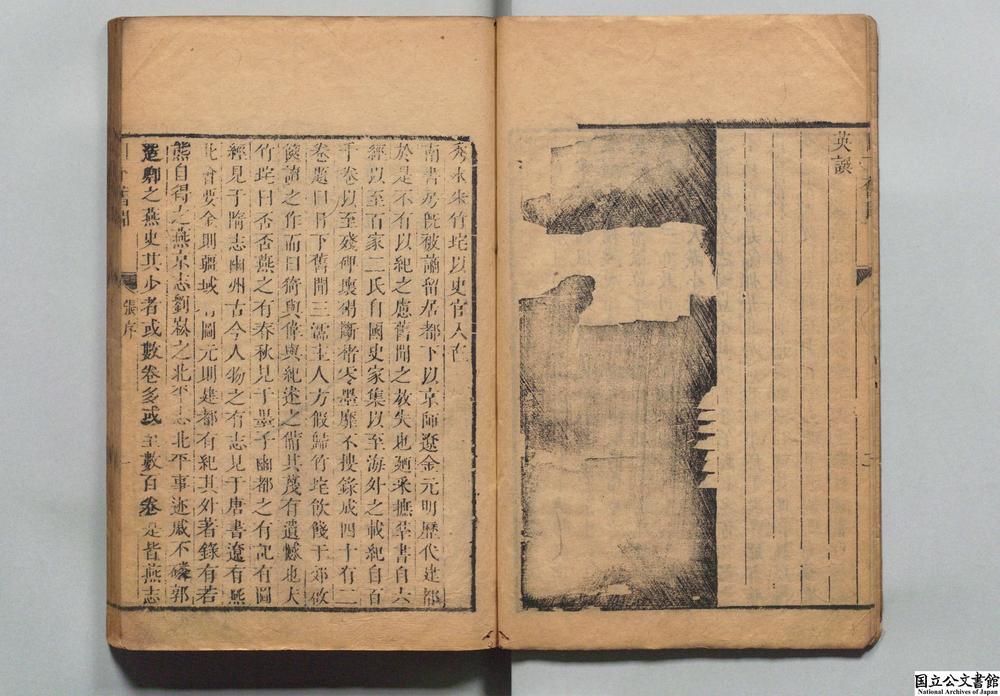 英譔
秀水朱竹垞以史官入直
南書房旣被謫留居都下以京師遼金元明歷代建都
於是不有以紀之慮舊聞之放失也廼采摭羣書自六
經以至百家二氏自國史家集以至海外之載紀自百
千卷以至殘碑壞碣斷楮零墨靡不搜錄成四十有二
卷題曰日下舊聞三 主人方假歸竹垞飮餞于郊
請之作而曰猗與偉與紀述之備其蔑有遺憾也夫
竹垞曰否否燕之有春秋見于墨子幽都之有記有圖
經見于隋志幽州古今人物之有志見于唐書遼有燕
北會要金則疆域 圖元則建都有紀其外著錄有若
熊自得之燕京志劉崧之北平志北平事迹戚不磷郭
造卿之燕史其少者或數卷多或至數百卷是皆燕志
日下舊聞
張序
一
国立公文書館
National Archives of Japan